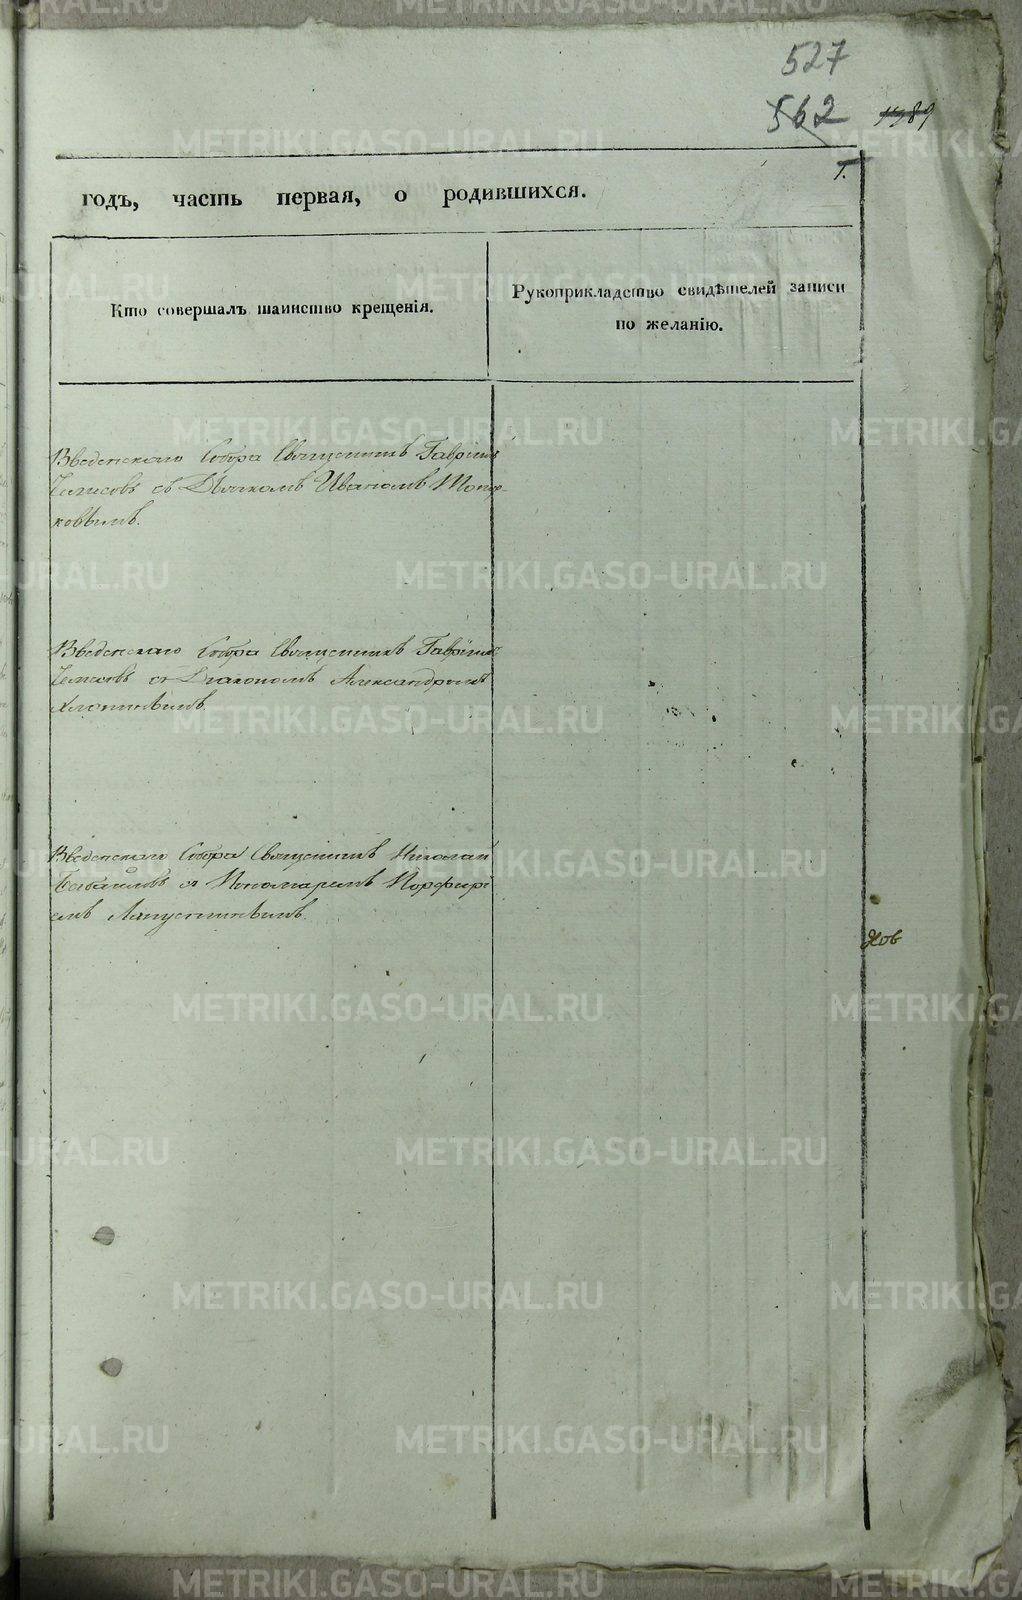 527
562
1389
годъ, часть первая, о родившихся.
Кто совершалъ таинство крещенія.
Рукоприкладство свидѣтелей записи
по желанію.
Введенскаго Собора Священникъ Гавріилъ
съ Дьячкомъ Иваномъ Топор-
ковымъ.
Введенскаго Собора Священникъ Гавріилъ
съ Діакономъ Александромъ
Введенскаго Собора Священникъ Николай
съ Пономаремъ Порфирі-
емъ Ляпустинымъ.
METRIKI.GASO-URAL.RU